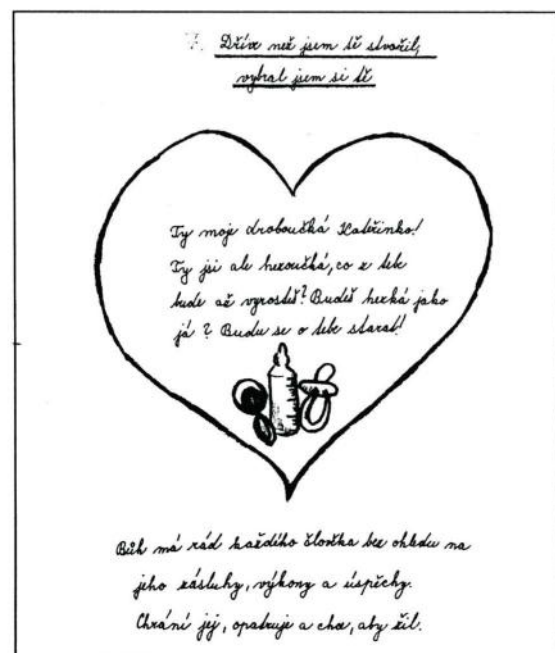 Dříve než jsem tě stvořil,
vybral jsem si tě
Ty moje droboučká Kateřinko!
Ty jsi ale hezoučká, co z tebe
bude až vyrosteš? Budeš hezká jako
já? Budu se o tebe starat!
Bůh má rád každého člověka bez ohledu na
jeho zásluhy, výkony a úspěchy.
Chrání jej, opatruje a chce, aby žil.